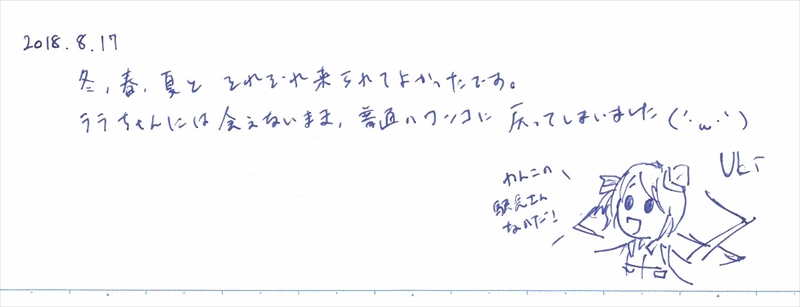 2018.8.17
冬,春,夏と それぞれ来られてよかったです。
ララちゃんには会えないまま,普通のワンコに 戻ってしまいました(´・ω・`)
わんこの
駅長さん
なのだ!